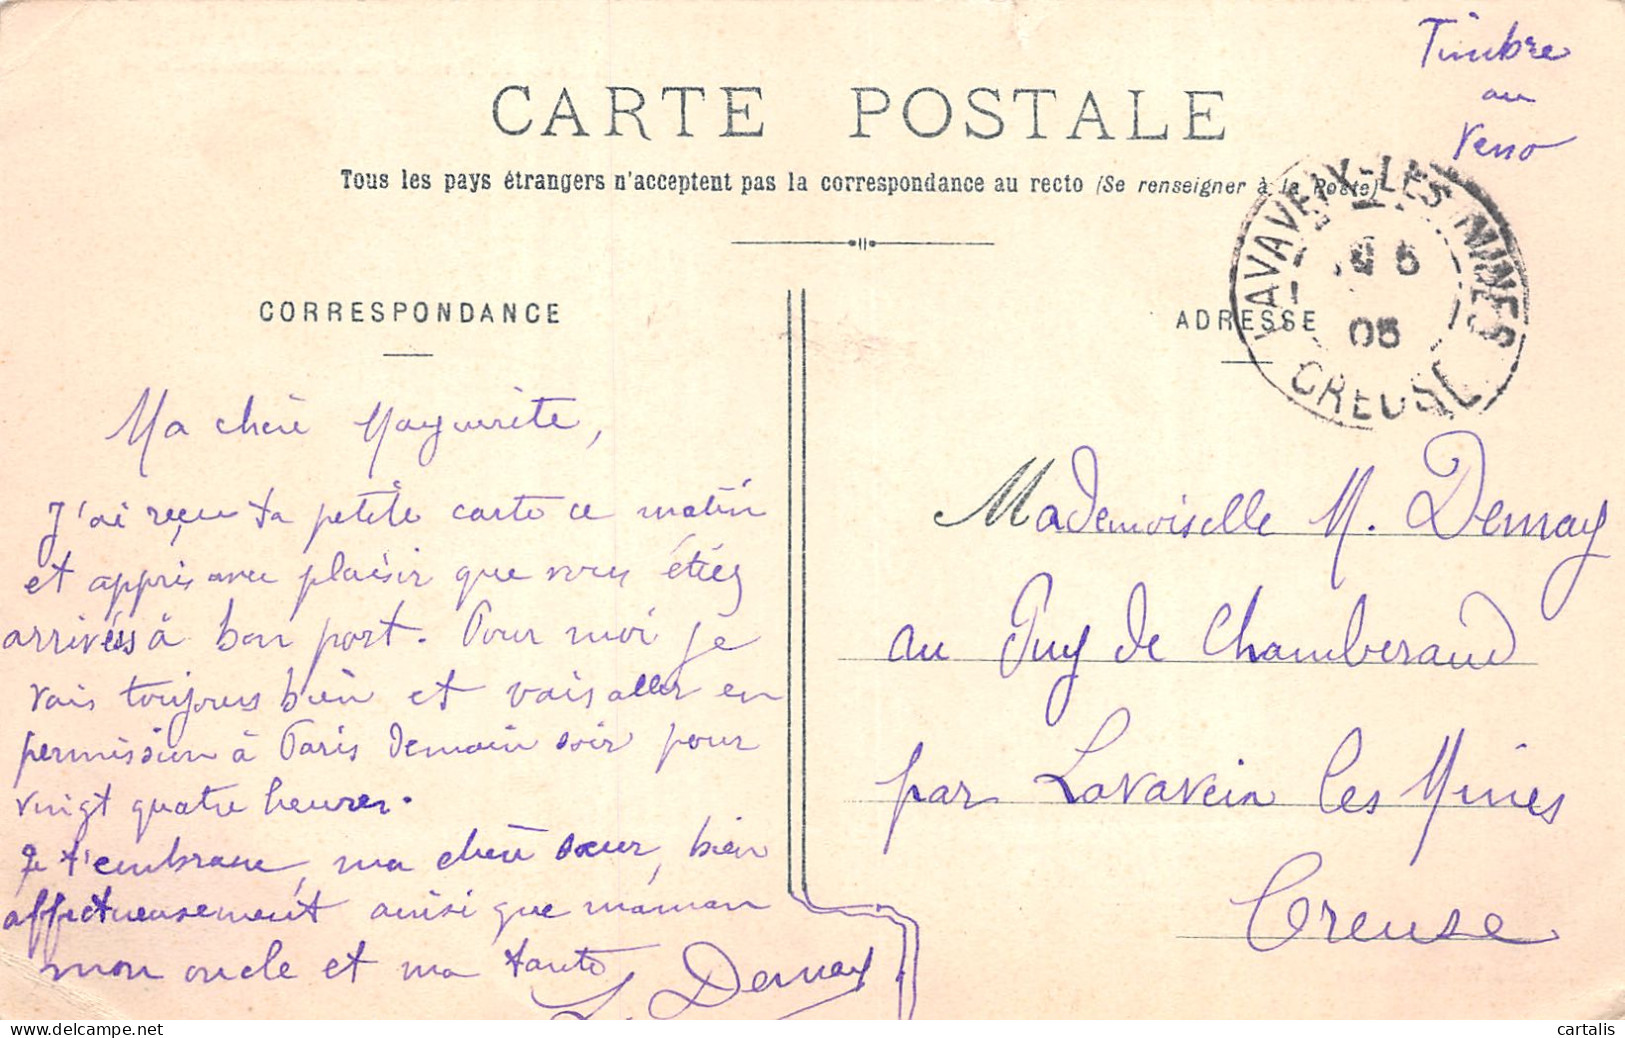 Timbre
au
Verso
CARTE POSTALE
Tous les pays étrangers n'acceptent pas la correspondance au recto (Se renseigner à la Poste)
LAVAVEIX-LES-MINES
5
05
CREUSE
CORRESPONDANCE
ADRESSE
Ma chère Marguerite,
J'ai reçu ta petite carte ce matin
et appris avec plaisir que vous étiez
arrivées à bon port. Pour moi je
vais toujours bien et vais aller en
permission à Paris demain soir pour
vingt quatre heures.
Je t'embrasse, ma chère sœur, bien
affectueusement ainsi que maman
mon oncle et ma tante
L. Demay
Mademoiselle M. Demay
au Puy de Chamberaud
par Lavaveix les Mines
Creuse
cartalis
www.delcampe.net